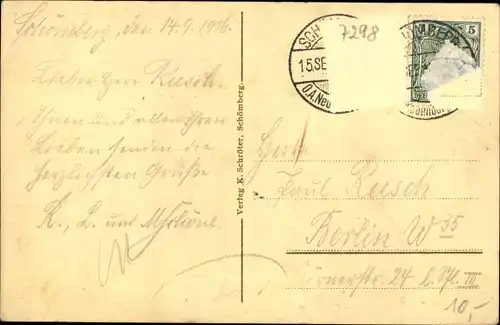 Schömberg, den 14.9.1916.
Lieber Herr Reesch.
Ihnen und allen Ihren
Lieben senden die
herzlichsten Grüße
K., L. und
Verlag K. Schröter, Schömberg.
7298
SCH
15SE
O.A.Neu
MBERG
5
Herrn
Paul Reesch
Berlin W 35
str. 24 III
10,-